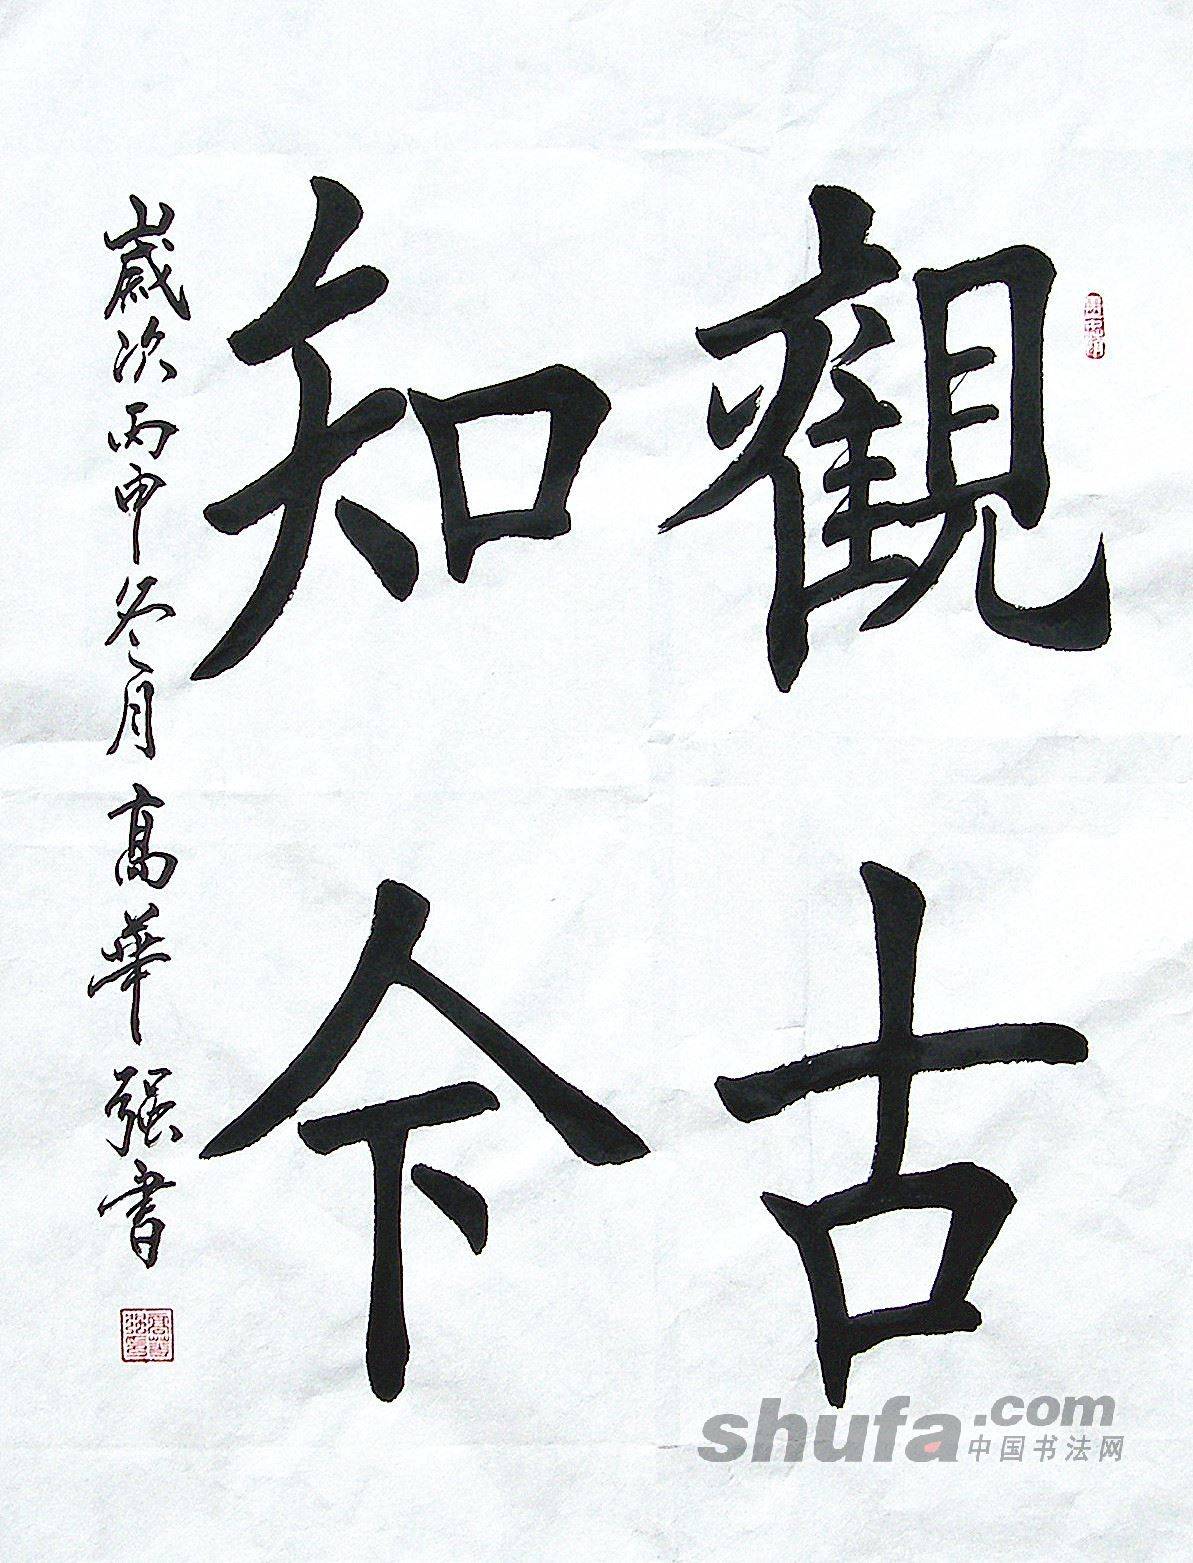 觀古
知今
歲次丙申冬月高華强書
shufa.com
中国书法网